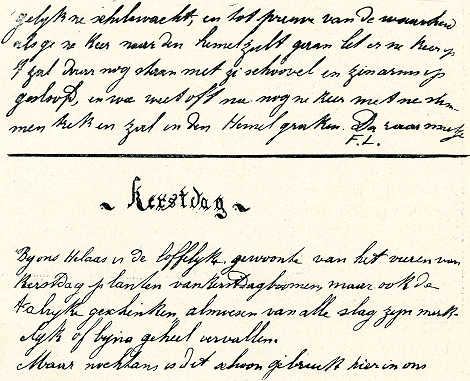 gelyk ne schilwacht, en tot preuve van de waarheid
als ge ne keer naar den hemel zult gaan let er ne keer op
't zal daar nog staan met zi schoovel en zin arms op
gesloopt, en wie weet oft nie nog ne keer met ne slim-
men trek en zal in den Hemel graken. Da waar my
F. L.
Kerstdag
By ons Helaas is de loffelyke gewoonte van het vieren van
Kerstdag planten van kerstdagboomen, maar ook da
talryke geschinken, almoesen van alle slag zyn merk-
lyk of byna geheel vervallen.
Maar nochtans is dit schoon gebruik hier in ons